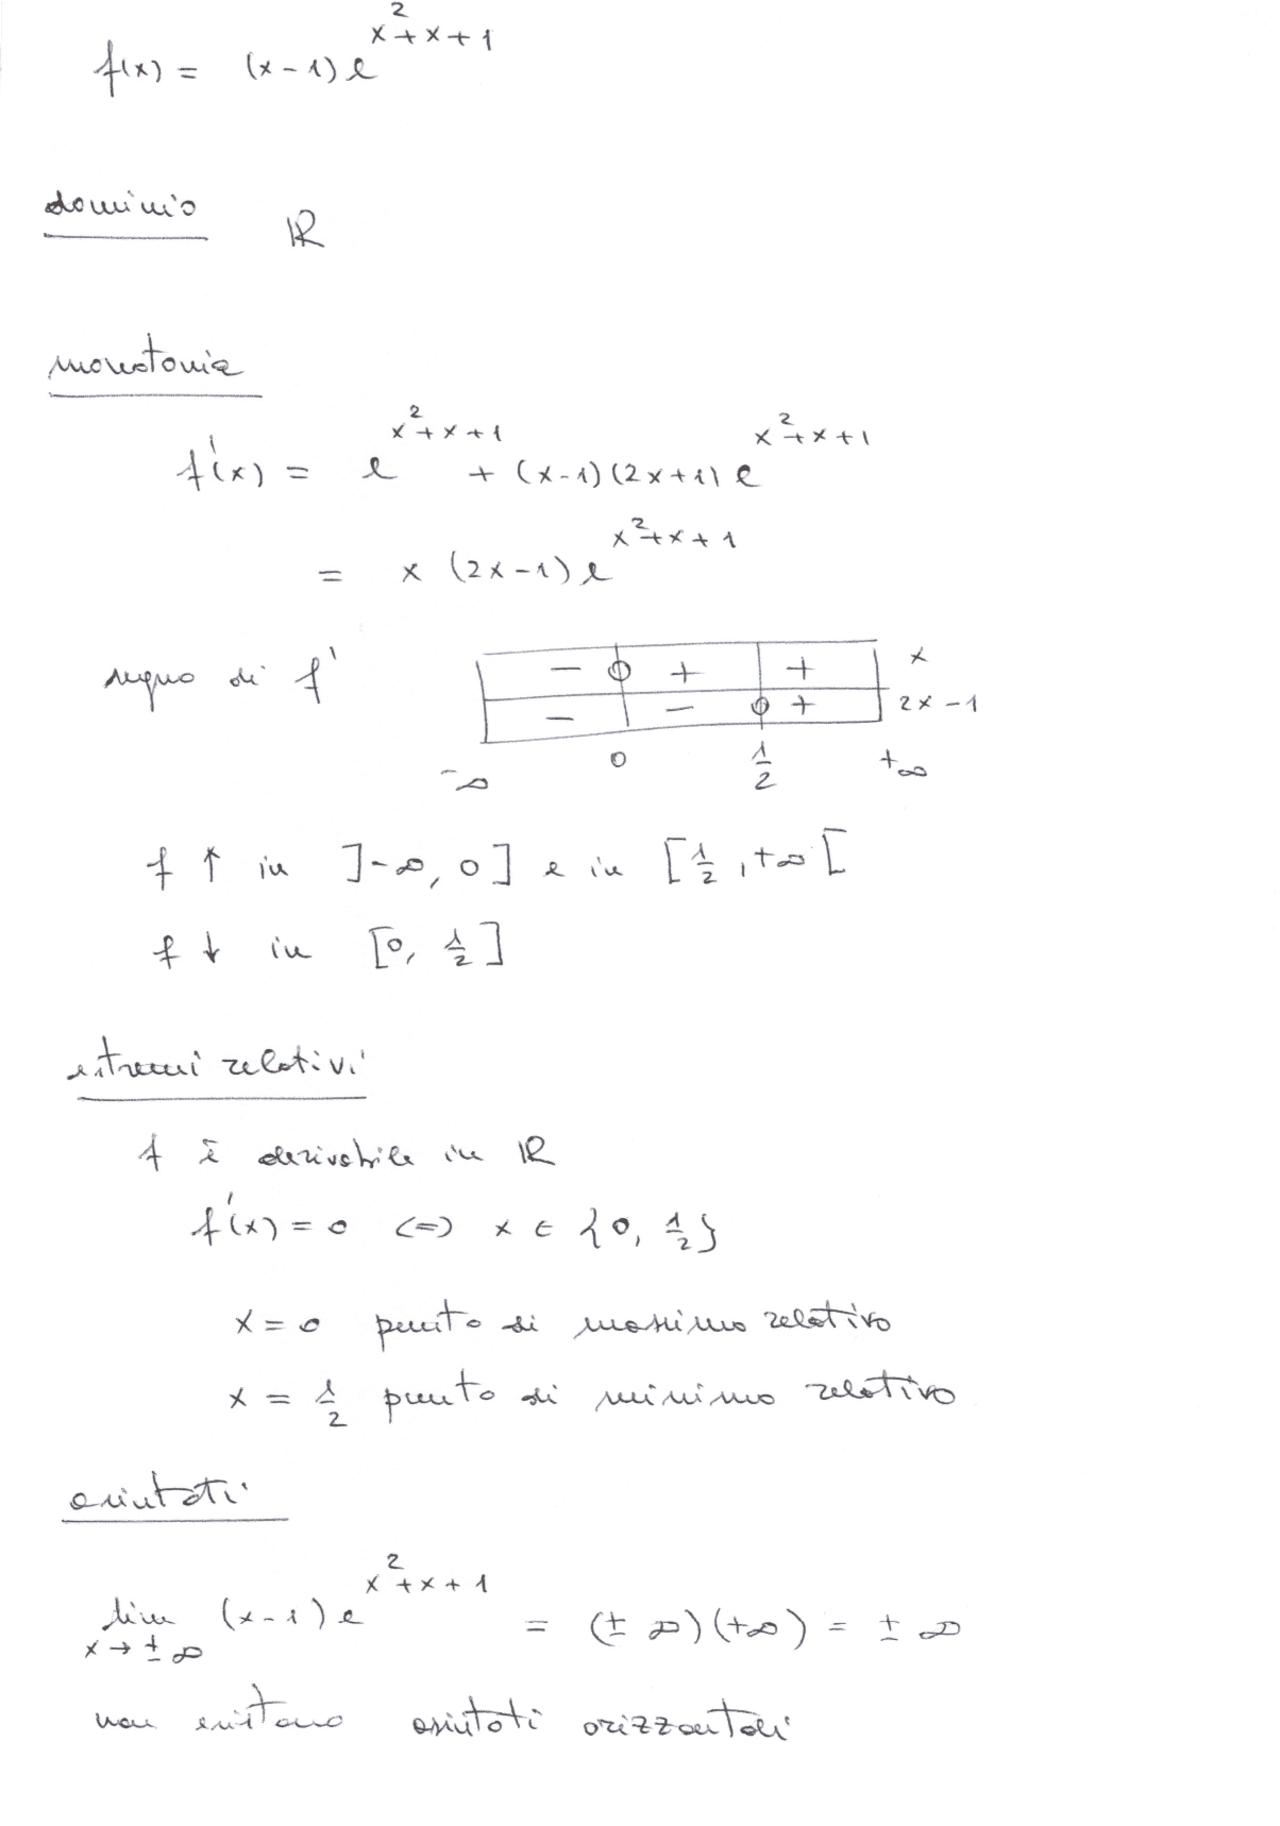 f(x) = (x-1) e^{x^2+x+1}
dominio ℝ
monotonia
f'(x) = e^{x^2+x+1} + (x-1)(2x+1) e^{x^2+x+1}
= x (2x-1) e^{x^2+x+1}
segno di f'
− 0 + + x
− − 0 + 2x-1
-∞ 0 1/2 +∞
f ↑ in ]-∞, 0] e in [1/2, +∞[
f ↓ in [0, 1/2]
estremi relativi
f è derivabile in ℝ
f'(x) = 0 <=> x ∈ {0, 1/2}
x = 0 punto di massimo relativo
x = 1/2 punto di minimo relativo
asintoti
lim_{x→±∞} (x-1) e^{x^2+x+1} = (±∞)(+∞) = ±∞
non esistono asintoti orizzontali